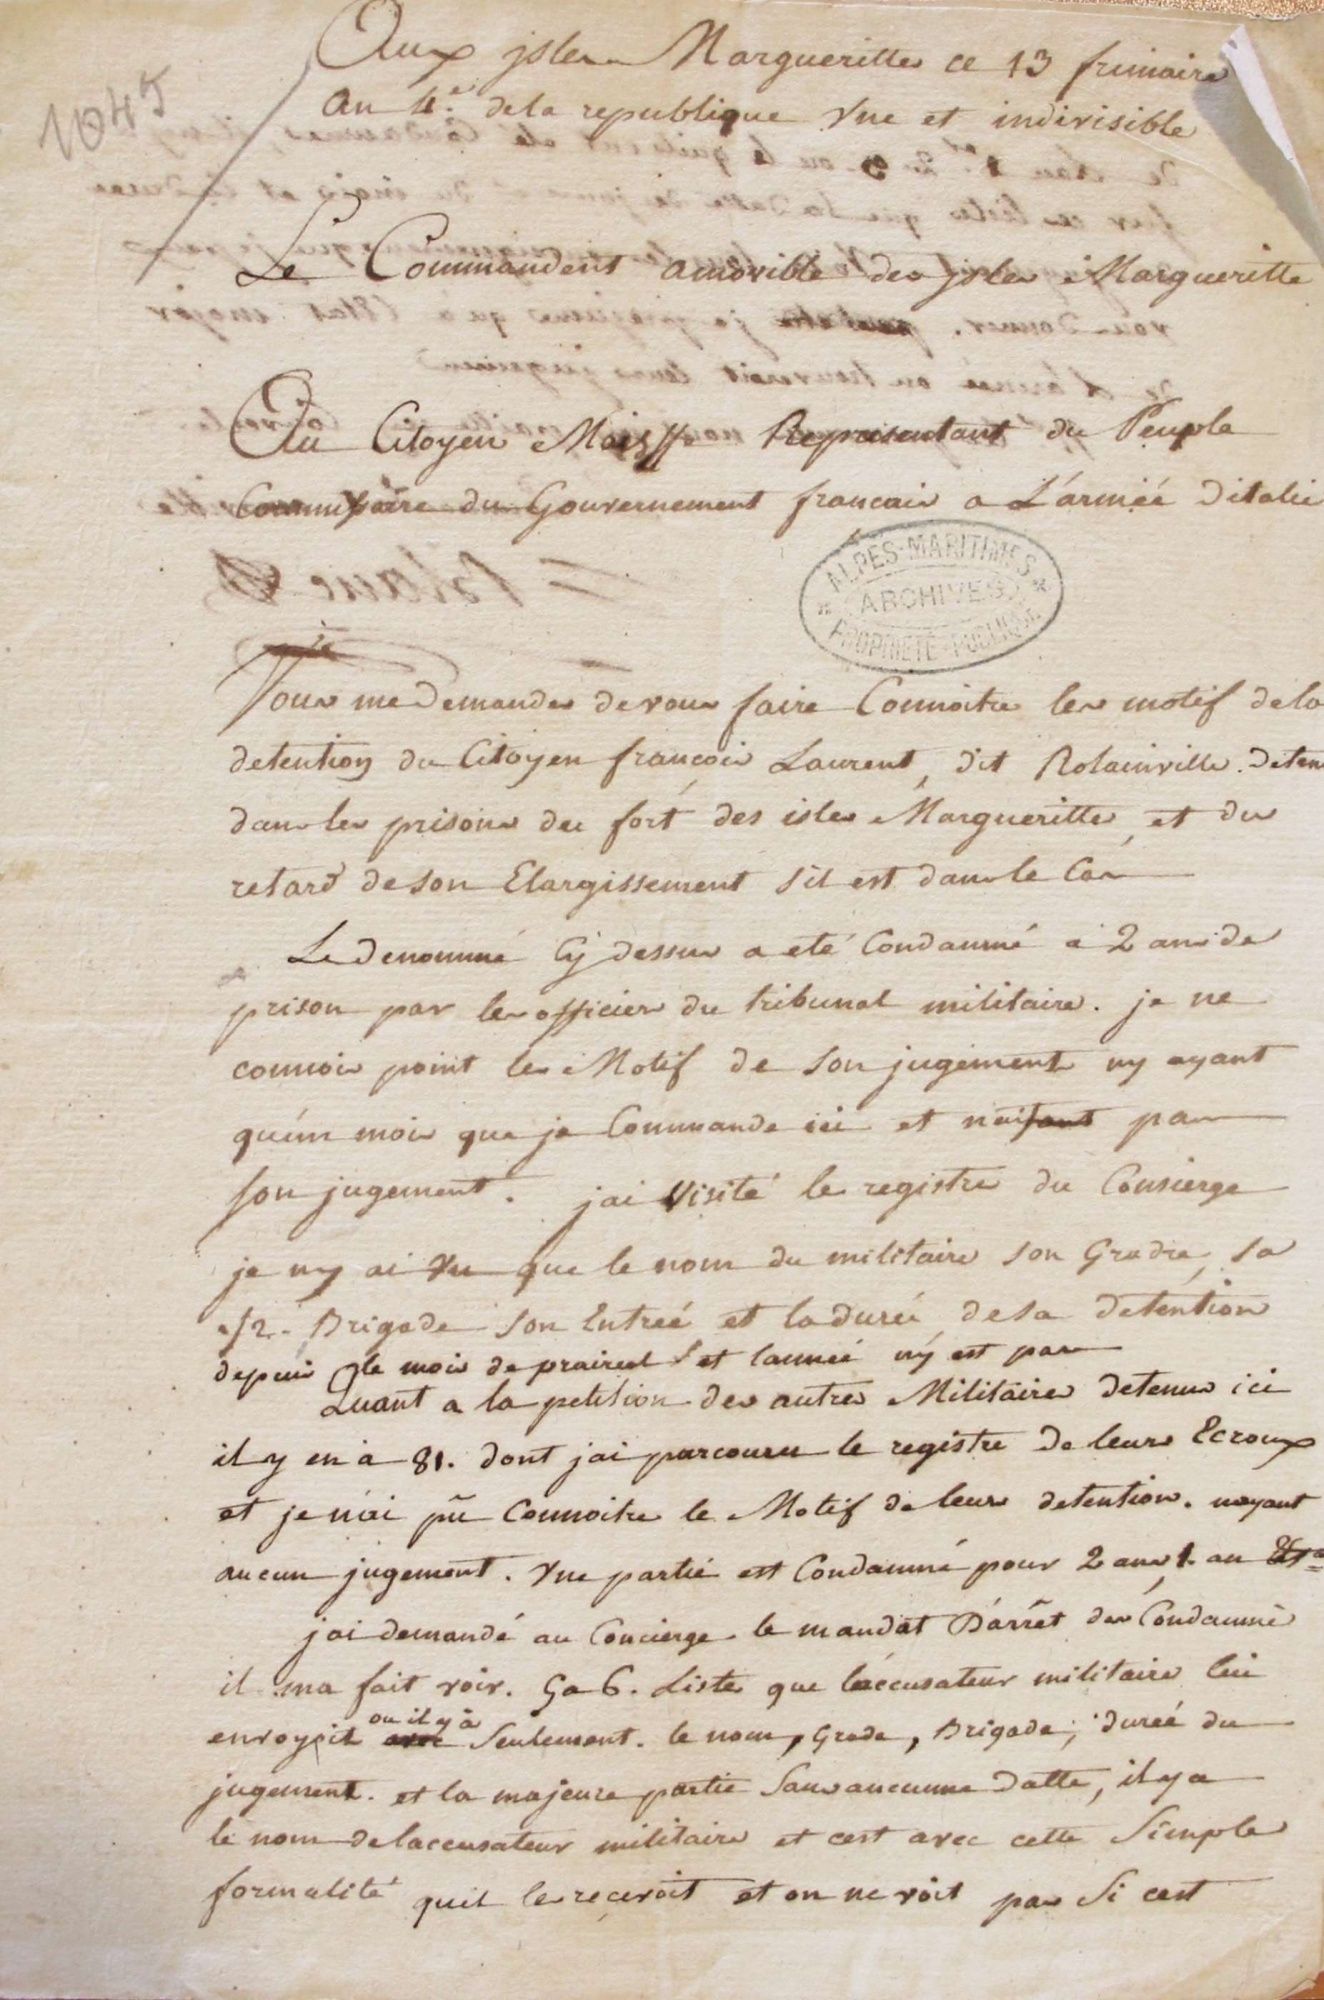 1045
Aux jsles Margueritte ce 13 frimaire
an 4e. de la republique Vne et indivisible
Le Commandent amovible des jsles Margueritte
Au Citoyen Maisse Representant du Peuple
Commissaire du Gouvernement francais a L'armée d'italie
ALPES-MARITIMES
ARCHIVES
PROPRIÉTÉ PUBLIQUE
Vous me demandes de vous faire Connoitre les motif de la
detention du Citoyen françois Laurent, dit Rolainville. deten
dans les prisons du fort des isles Margueritte, et du
retard de son Elargissement s'il est dans le Cas
Le denommé Cy dessus a eté Condamné a 2 ans de
prison par les officier du tribunal militaire. je ne
connois point les Motif de son jugement ny ayant
qu'un mois que je Commande ici et pas
son jugement. jai visité le registre du Consierge
je ny ai vu que le nom du militaire son Gradre, sa
1/2 Brigade son Entreé et la dureé de sa detention
depuis le mois de prairial et lanneé ny est pas
Quant a la petition des autres Militaires detenus ici
il y en à 81. dont jai parcouru le registre de leurs Ecroux
et je n'ai pû Connoitre le Motif de leur detention. nayant
aucun jugement. Vne partie est Condamné pour 2 ans, 1. an
jai demandé au Concierge le mandat D'arrêt des Condamné
il ma fait voir. 5 a 6. Listes que l'accusateur militaire lui
envoyoit ou il y a Seulement. le nom, Grade, Brigade, dureé du
jugement. et la majeure partie Sans aucunne datte, il y a
le nom de laccusateur militaire et cest avec cette Simple
formalité quil les recevoit et on ne voit pas Si cest